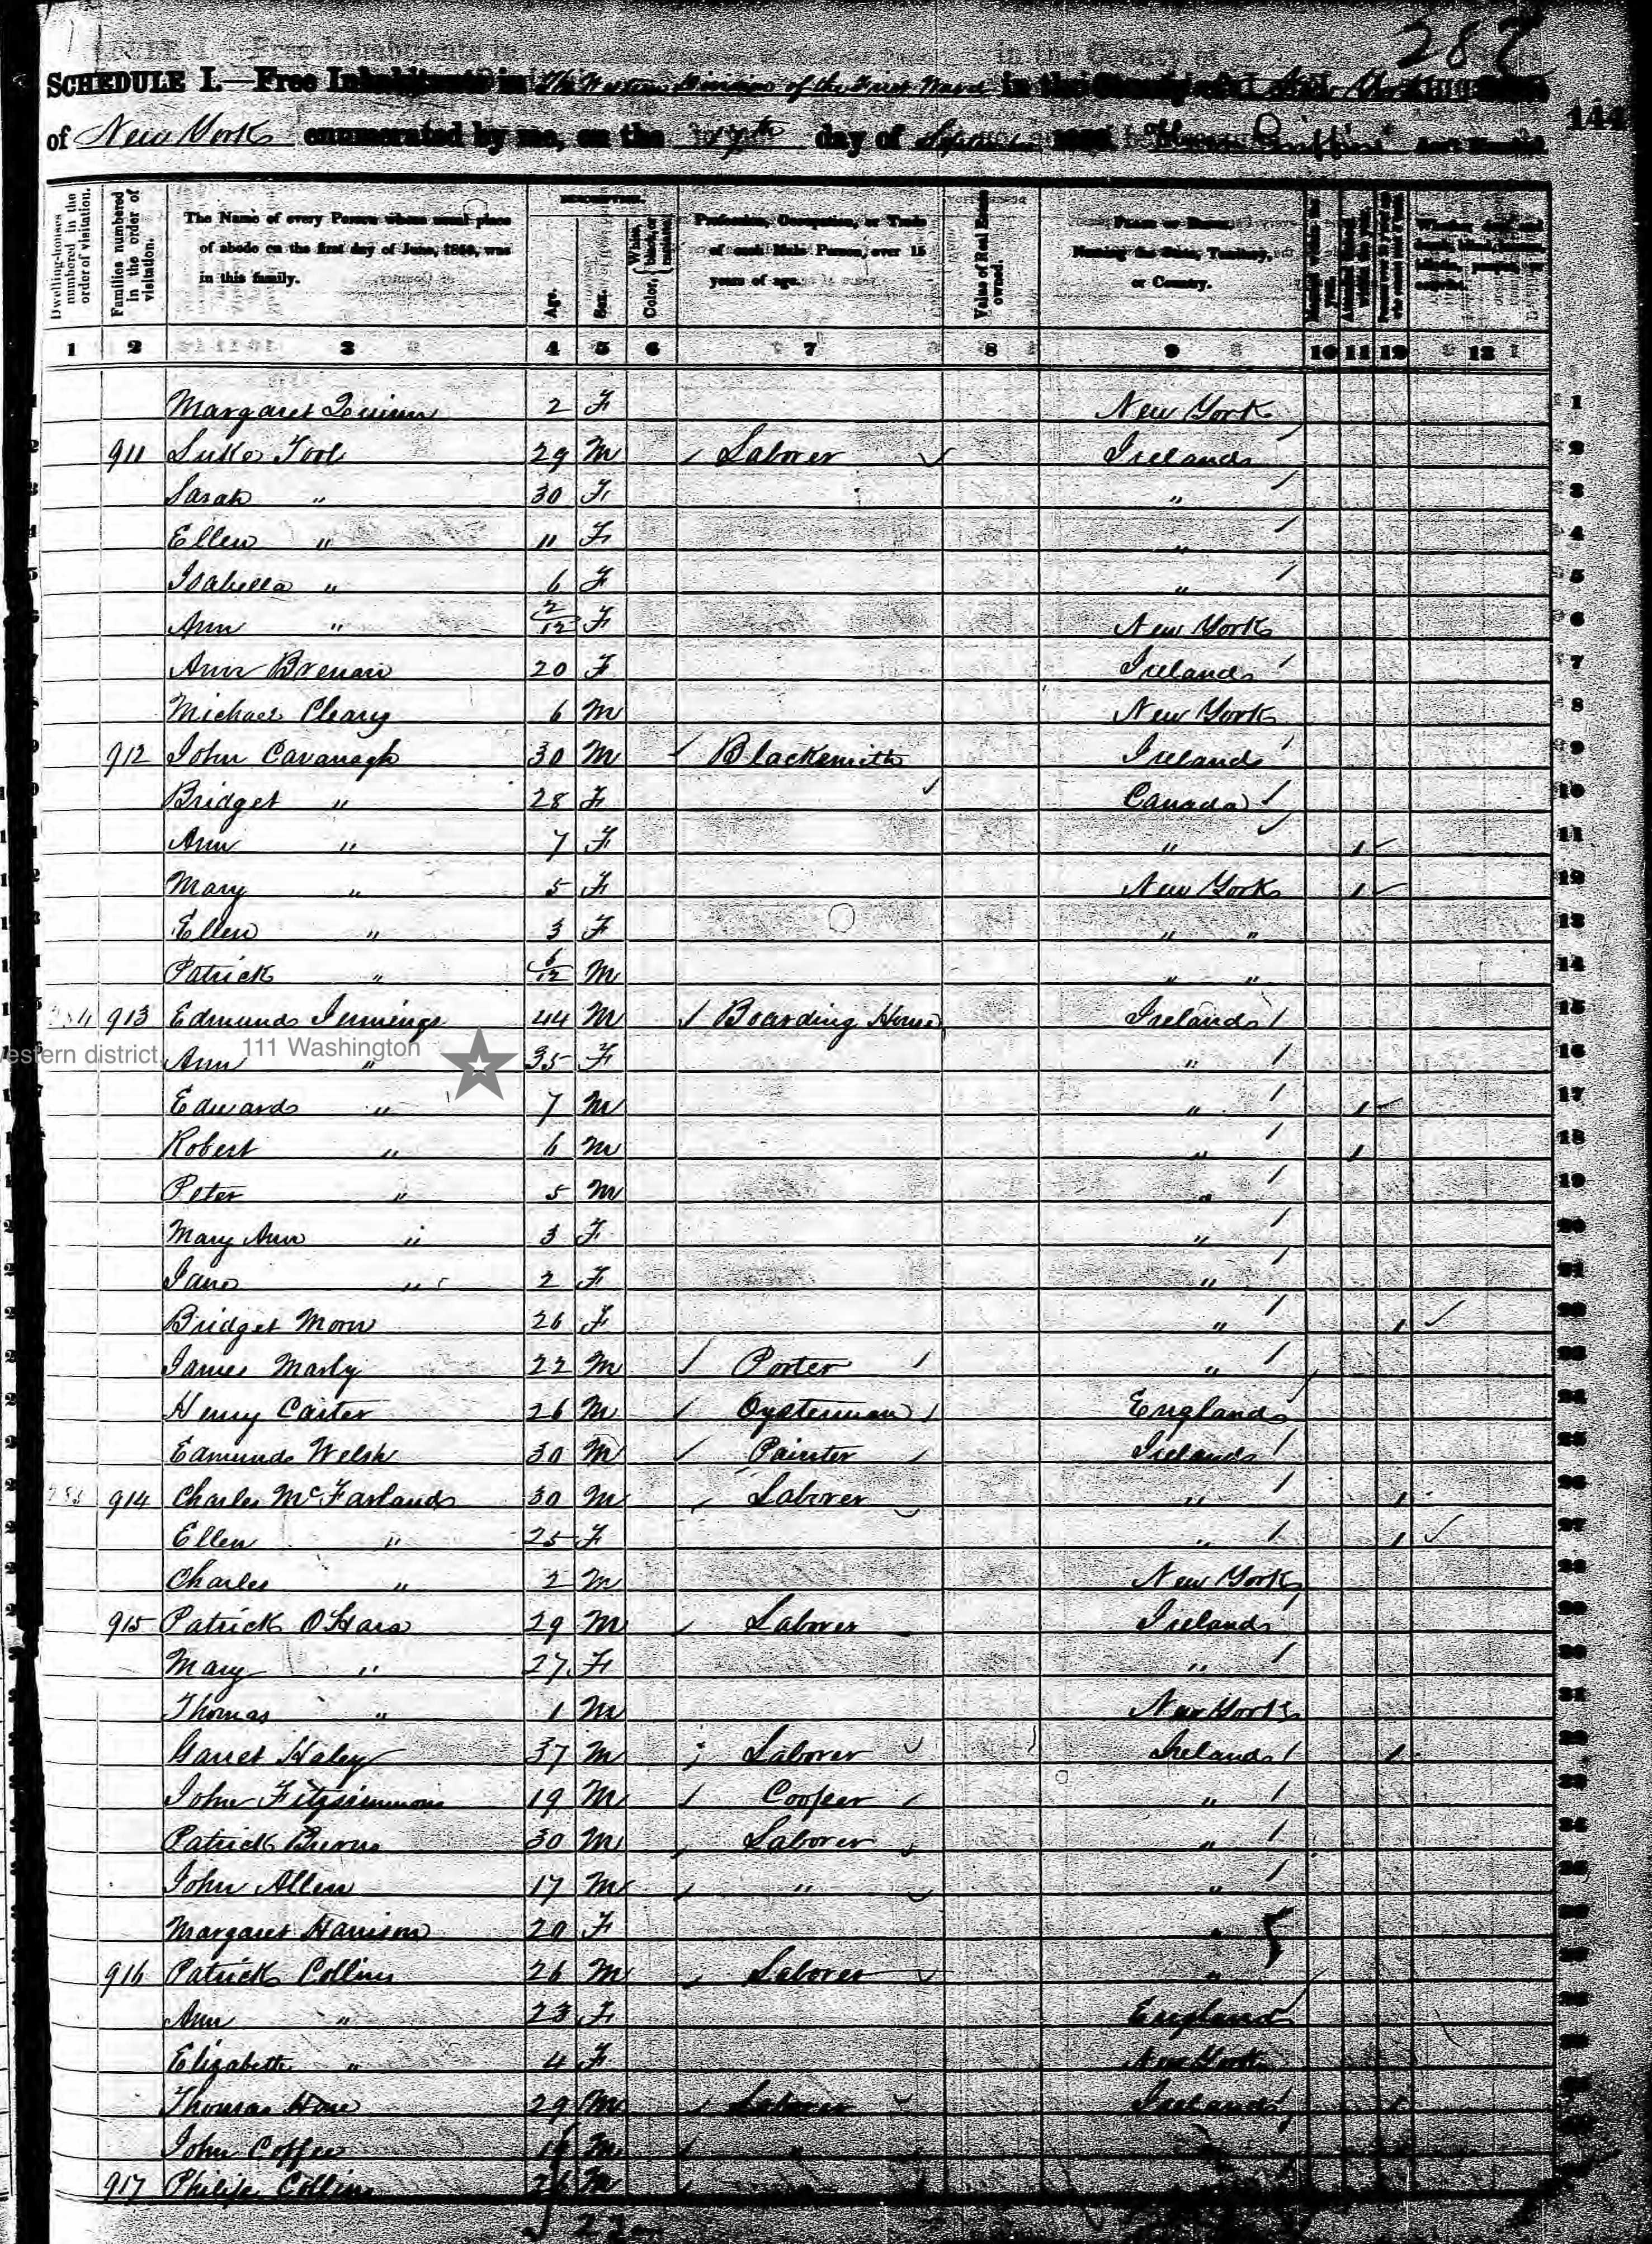 287
SCHEDULE I.—Free Inhabitants in The Western Division of the First Ward in the County of New York State
144
of New York enumerated by me, on the 17th day of Ass't Marshal.
Dwelling-houses numbered in the order of visitation.
Families numbered in the order of visitation.
The Name of every Person whose usual place of abode on the first day of June, 1850, was in this family.
DESCRIPTION.
Age.
Sex.
Color, White, black, or mulatto.
Profession, Occupation, or Trade of each Male Person, over 15 years of age.
Value of Real Estate owned.
PLACE OF BIRTH. Naming the State, Territory, or Country.
1 2 3 4 5 6 7 8 9 10 11 12 13
Margaret Quinn 2 F New York 1
911 Luke Tool 29 M Laborer Ireland 2
Sarah " 30 F " 3
Ellen " 11 F " 4
Isabella " 6 F " 5
Ann " 2/12 F New York 6
Ann Brenan 20 F Ireland 7
Michael Cleary 6 M New York 8
912 John Cavanagh 30 M Blacksmith Ireland 9
Bridget " 28 F Canada 10
Ann " 7 F " 1 11
Mary " 5 F New York 1 12
Ellen " 3 F " " 13
Patrick " 6/12 M " " 14
913 Edmund Jennings 44 M Boarding House Ireland 15
estern district 111 Washington
Ann " 35 F " 16
Edward " 7 M " 1 17
Robert " 6 M " 1 18
Peter " 5 M " 19
Mary Ann " 3 F " 20
Jane " 2 F " 21
Bridget Moon 26 F " 1 22
James Marly 22 M Porter " 23
Henry Carter 26 M Oysterman England 24
Edmund Welsh 30 M Painter Ireland 25
914 Charles McFarland 30 M Laborer " 1 26
Ellen " 25 F " 1 27
Charles " 2 M New York 28
915 Patrick OHara 29 M Laborer Ireland 29
Mary " 27 F " 30
Thomas " 1 M New York 31
Garret Haley 37 M Laborer Ireland 1 32
John Fitzsimmons 19 M Cooper " 33
Patrick Burns 30 M Laborer " 34
John Allen 17 M " " 35
Margaret Harrison 20 F "
916 Patrick Collins 26 M Laborer "
Ann " 23 F England
Elizabeth " 4 F New York
Thomas Hare 29 M Laborer Ireland 1
John Coffee M "
917 Philip Collins 26 M